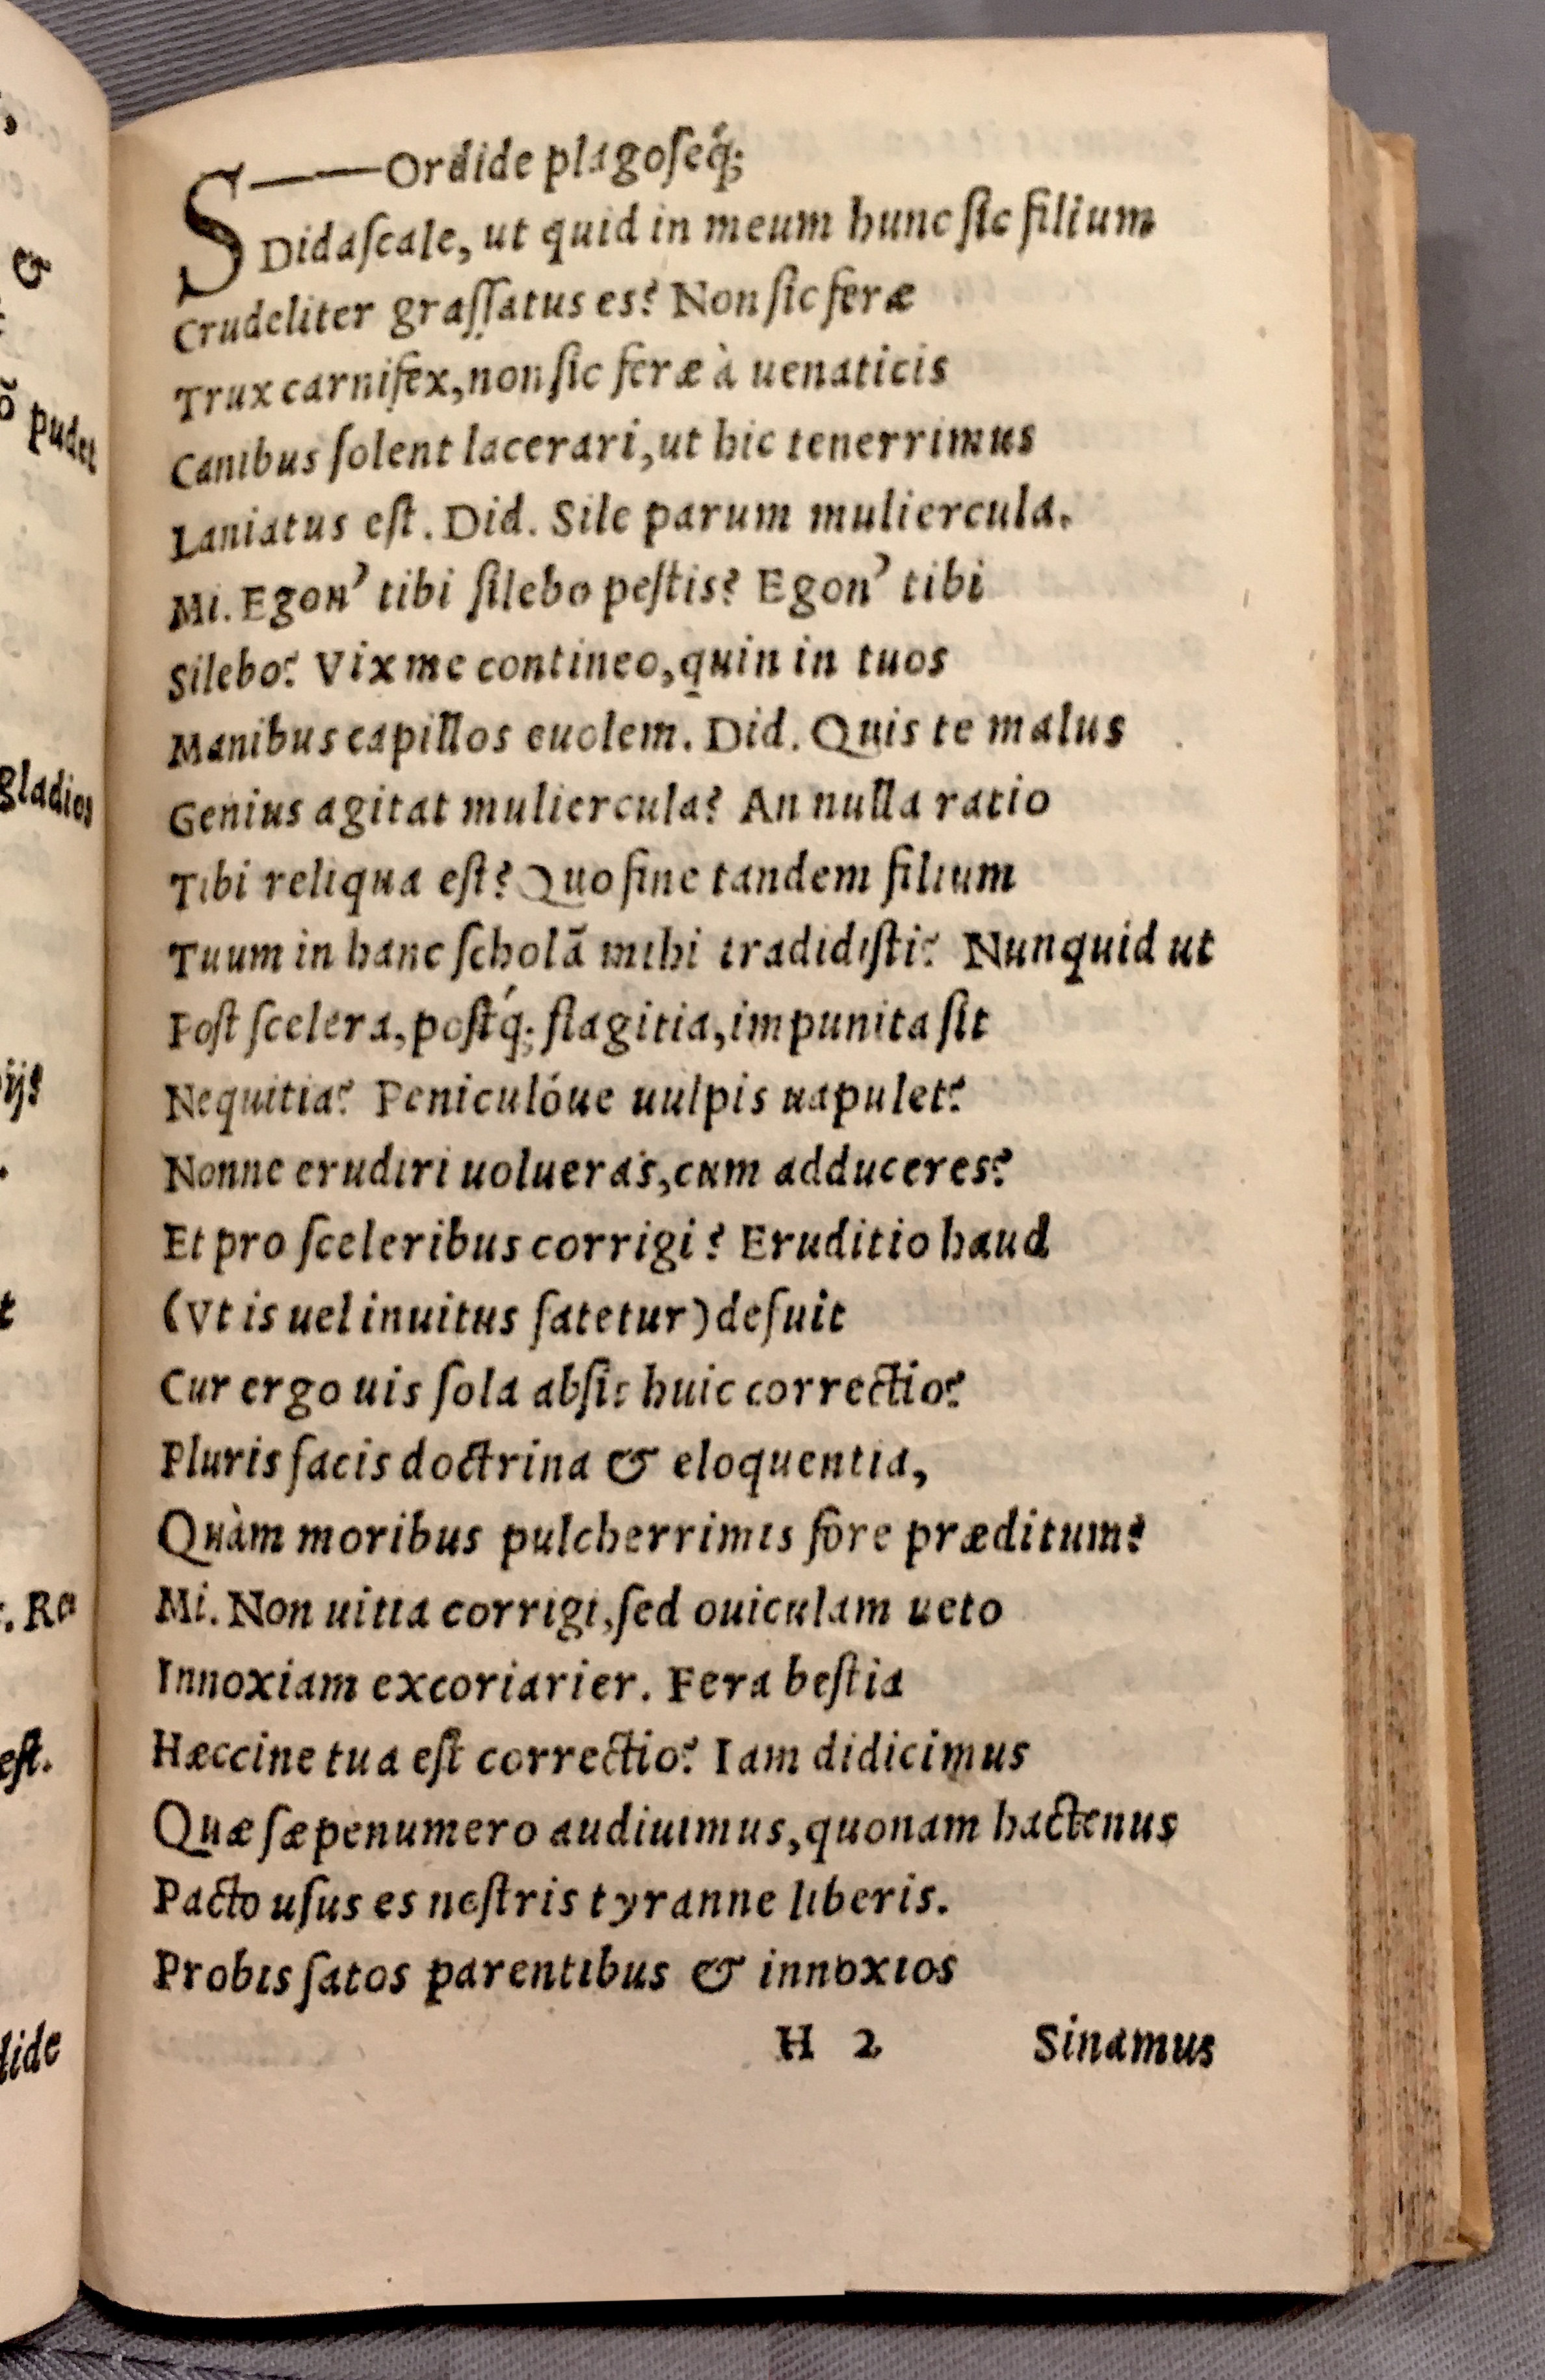 S——Ordide plagoſeq́;
Didaſcale, ut quid in meum hunc ſic filium
Crudeliter graſſatus es? Non ſic feræ
Trux carnifex, non ſic feræ à uenaticis
Canibus ſolent lacerari, ut hic tenerrimus
Laniatus eſt. Did. Sile parum muliercula.
Mi. Egon' tibi ſilebo peſtis? Egon' tibi
Silebo? Vix me contineo, quin in tuos
Manibus capillos euolem. Did. Quis te malus
Genius agitat muliercula? An nulla ratio
Tibi reliqua eſt? Quo fine tandem filium
Tuum in hanc ſcholã mihi tradidiſti? Nunquid ut
Poſt ſcelera, poſtq́; flagitia, impunita ſit
Nequitia? Peniculóue uulpis uapulet?
Nonne erudiri uolueras, cum adduceres?
Et pro ſceleribus corrigi? Eruditio haud
(Vt is uel inuitus fatetur) defuit
Cur ergo uis ſola abſit huic correctio?
Pluris facis doctrina & eloquentia,
Quàm moribus pulcherrimis fore præditum?
Mi. Non uitia corrigi, ſed ouiculam ueto
Innoxiam excoriarier. Fera beſtia
Hæccine tua eſt correctio? Iam didicimus
Quæ ſæpenumero audiuimus, quonam hactenus
Pacto uſus es noſtris tyranne liberis.
Probis ſatos parentibus & innoxios
H 2 Sinamus
&
pudet
gladios
eſt.